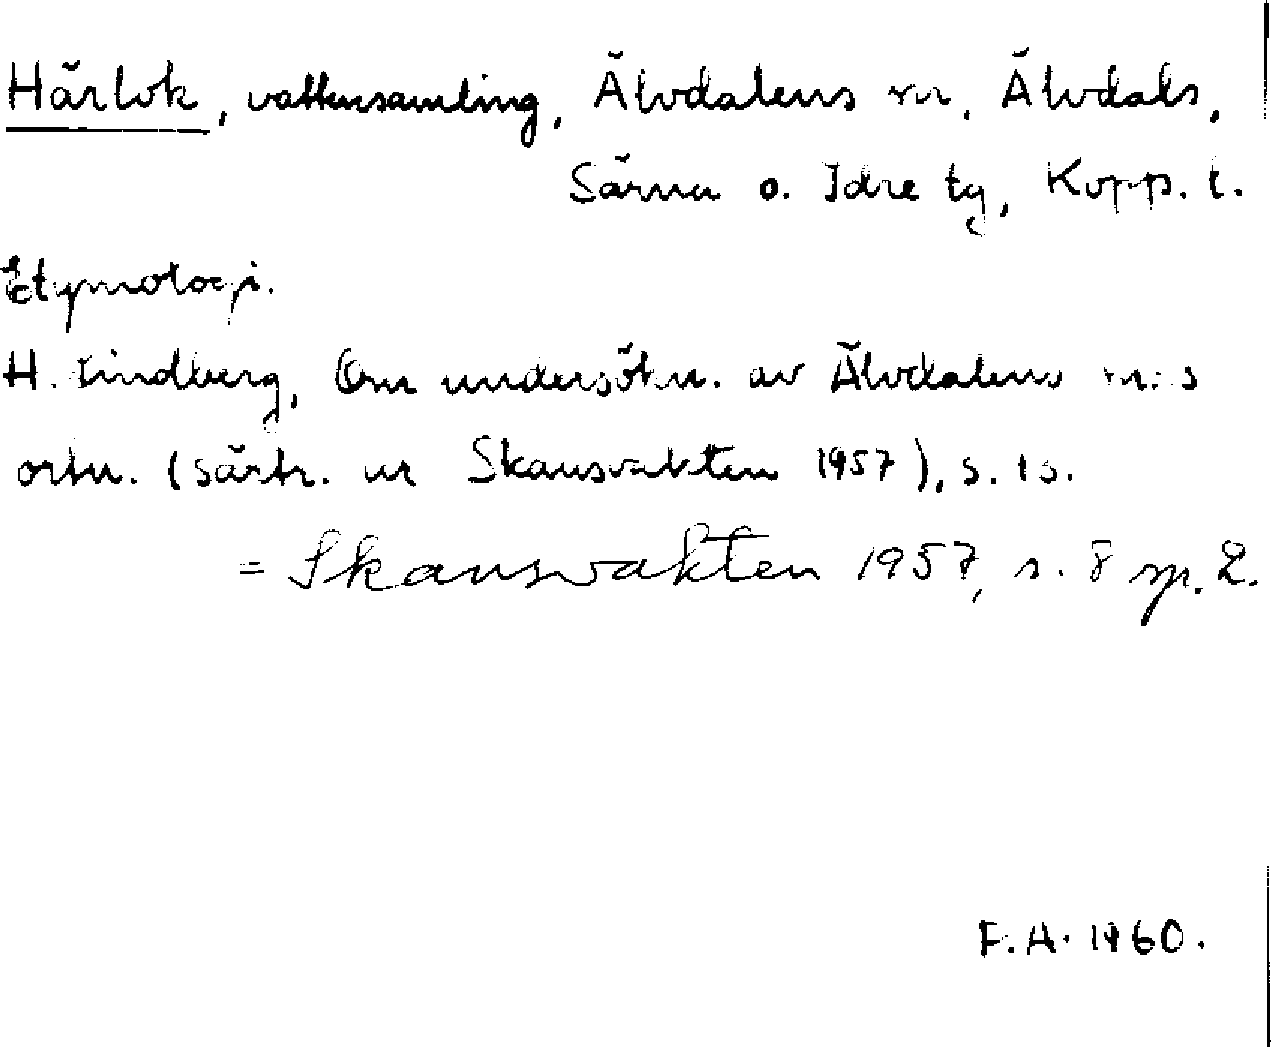 Härlok, vattensamling, Älvdalens sn, Älvdals,
Särna o. Idre tg, Kopp. l.
Etymologi.
H. Lindberg, Om undersökn. av Älvdalens sn:s
ortn. (särtr. ur Skansvakten 1957), s.
= Skansvakten 1957, s. 8 sp. 2.
F.A. 1960.